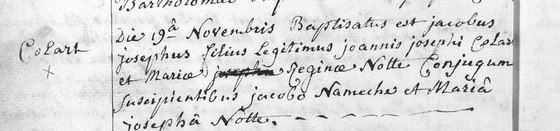 Bartholomæ
Die 19â Novembris Baptisatus est jacobus
Colart
josephus filius legitimus joannis josephi Colar
et Mariæ josepha Reginæ Notte Conjugum
Suscipientibus jacobo Nameche et Mariâ
josephâ Notte.